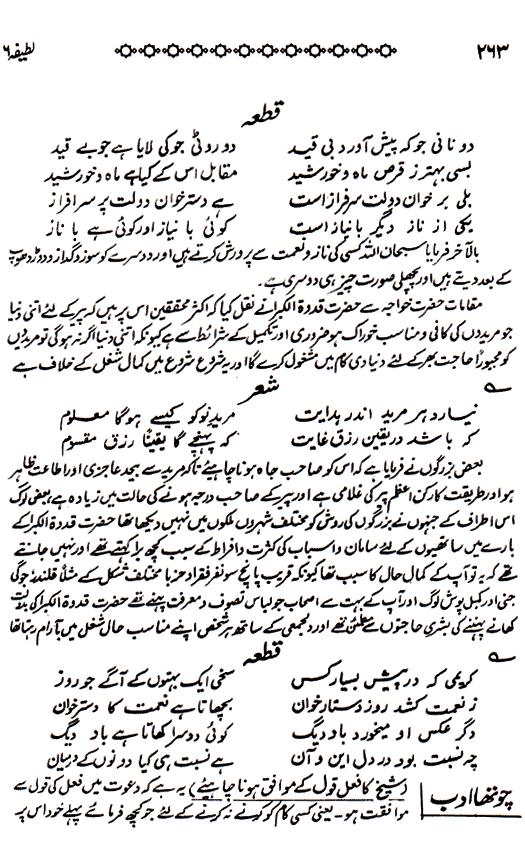 ۲۶۳ لطیفہ ۶
قطعہ
دو نانی جو کہ پیش آورد بی قید دو روٹی جو کی لایا ہے جو بے قید
بسی بہتر ز قرص ماہ و خورشید مقابل اس کے کیا ہے ماہ و خورشید
بلی بر خوان دولت سرفراز است ہے دسترخوان دولت پر سرافراز
یکی از ناز دیگر با نیاز است کوئی با نیاز اور کوئی ہے با ناز
بالآخر فرمایا سبحان اللہ کسی کی ناز و نعمت سے پرورش کرتے ہیں اور دوسرے کو سوز و گداز و دوڑ دھوپ
کے بعد دیتے ہیں اور پچھلی صورت چیز ہی دوسری ہے۔
مقامات حضرت خواجہ سے حضرت قدوۃ الکبرا نے نقل کیا کہ اکثر محققین اس پر ہیں کہ پیر کے لئے اتنی دنیا
جو مریدوں کی کافی و مناسب خوراک ہو ضروری اور تکمیل کے شرائط سے ہے کیونکہ اتنی دنیا اگر نہ ہوگی تو مریدوں
کو مجبوراً حاجت بھر کے لئے دنیاوی کام میں مشغول کرے گا اور یہ شروع شروع میں کمال شغل کے خلاف ہے
شعر
نیارد ہر مرید اندر ہدایت مرید نو کو کیسے ہوگا معلوم
کہ باشد در یقین رزق غایت کہ پہنچے گا یقیناً رزق مقسوم
بعض بزرگوں نے فرمایا ہے کہ اس کو صاحب جاہ ہونا چاہئے تاکہ مرید سے بیحد عاجزی اور اطاعت ظاہر
ہو اور طریقت کا رکن اعظم پیر کی غلامی ہے اور پیر کے صاحب درجہ ہونے کی حالت میں زیادہ ہے بعض لوگ
اس اطراف کے جنہوں نے بزرگوں کی روش کو مختلف شہروں ملکوں میں نہیں دیکھا تھا حضرت قدوۃ الکبرا کے
بارے میں ساتھیوں کے لئے سامان و اسباب کی کثرت و افراط کے سبب کچھ برا کہتے تھے اور نہیں جانتے
تھے کہ یہ تو آپ کے کمال حال کا سبب تھا کیونکہ قریب پانچ سو نفر فقراء و حزبا مختلف شکل کے مثلاً قلندر، جوگی
جٹی اور کمبل پوش لوگ اور آپ کے بہت سے اصحاب جو لباس تصوف و معرفت پہنے تھے حضرت قدوۃ الکبرا کی بدولت
کھانے پہننے کی بشری حاجتوں سے مطمئن تھے اور دلجمعی کے ساتھ ہر شخص اپنے مناسب حال شغل میں بآرام رہتا تھا
قطعہ
کریمی کہ در پیش بسیار کس سخی ایک بہتوں کے آگے جو روز
ز نعمت کشد روز دستار خوان بچھاتا ہے نعمت کا دسترخوان
دگر عکس او میخورد باد دیگ کوئی دوسرا کھاتا ہے باد دیگ
چہ نسبت بود در دل این و آن ہے نسبت ہی کیا دونوں کے درمیان
چوتھا ادب (شیخ کا فعل قول کے موافق ہونا چاہیئے) یہ ہے کہ دعوت میں فعل کی قول سے
موافقت ہو۔ یعنی کسی کام کو کرنے نہ کرنے کے لئے جو کچھ فرمائے پہلے خود اس پر